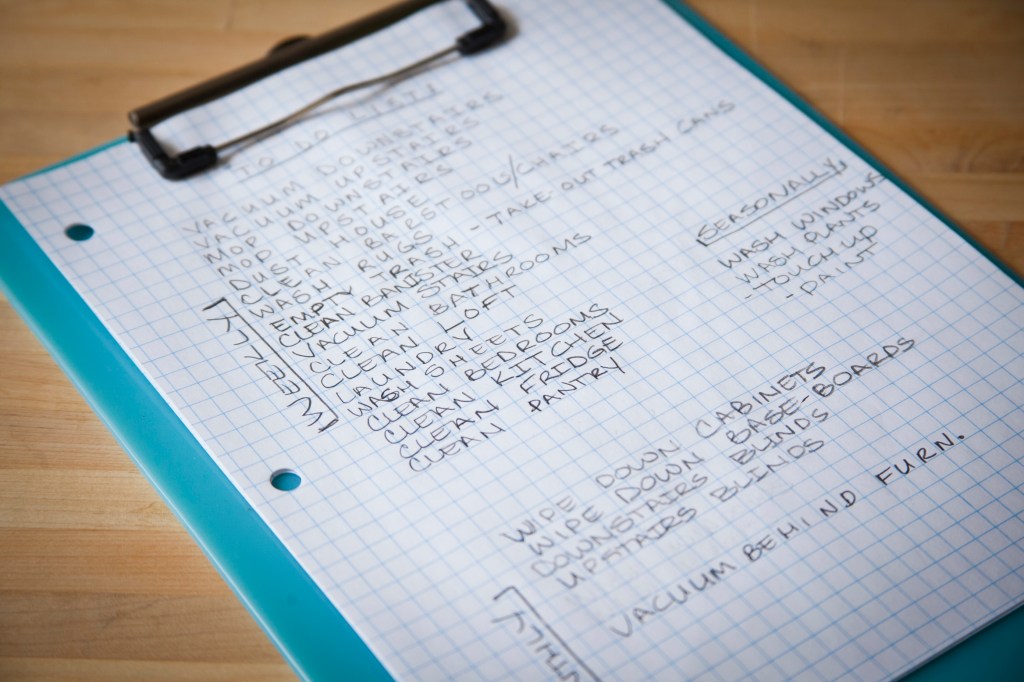 TO DO LISTS
VACUUM DOWNSTAIRS
VACUUM UPSTAIRS
MOP DOWNSTAIRS
MOP UPSTAIRS
DUST HOUSE!
CLEAN BARSTOOLS/CHAIRS
WASH RUGS
EMPTY TRASH - TAKE OUT TRASH CANS
CLEAN BANISTER
VACUUM STAIRS
CLEAN BATHROOMS
CLEAN LOFT
LAUNDRY
WASH SHEETS
CLEAN BEDROOMS
CLEAN KITCHEN
CLEAN FRIDGE
PANTRY
WEEKLY
SEASONALLY
WASH WINDOWS
WASH PLANTS
- TOUCH UP
- PAINT
WIPE DOWN CABINETS
WIPE DOWN BASE-BOARDS
DOWNSTAIRS BLINDS
UPSTAIRS BLINDS
VACUUM BEHIND FURN.